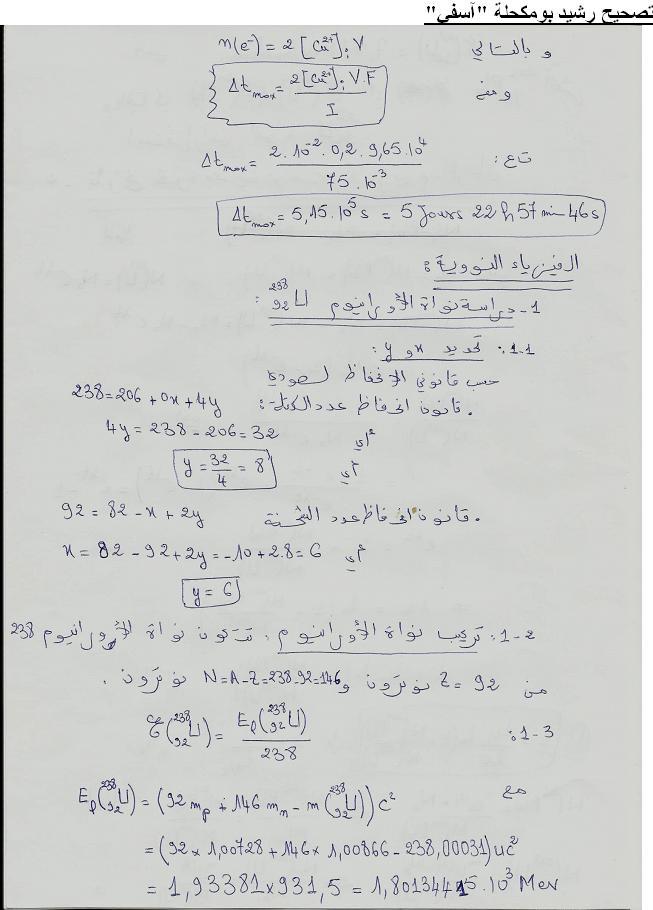 تصحيح رشيد بومكحلة "آسفي"
وبالتالي n(e⁻) = 2[Cu²⁺]ᵢV
ومنه Δt_max = 2[Cu²⁺]ᵢV.F / I
ت ع: Δt_max = 2.10⁻².0,2.9,65.10⁴ / 75.10⁻³
Δt_max = 5,15.10⁵ s = 5 Jours 22 h 57 min 46 s
الفيزياء النووية:
1- دراسة نواة الأورانيوم ²³⁸₉₂U:
1-1: تحديد x و y:
حسب قانوني الإنحفاظ لصودي
. قانون انحفاظ عدد الكتلة: 238 = 206 + 0x + 4y
أي 4y = 238 - 206 = 32
أي y = 32/4 = 8
. قانون انحفاظ عدد الشحنة 92 = 82 - x + 2y
أي x = 82 - 92 + 2y = -10 + 2.8 = 6
y = 6
1-2: تركيب نواة الأورانيوم. تتكون نواة الأورانيوم 238
من Z = 92 نوترون و N=A-Z=238-92=146 نوترون.
1-3: ℰ(²³⁸₉₂U) = Eℓ(²³⁸₉₂U) / 238
مع Eℓ(²³⁸₉₂U) = (92 m_p + 146 m_n - m(²³⁸₉₂U))c²
= (92 × 1,00728 + 146 × 1,00866 - 238,00031)uc²
= 1,93381 × 931,5 = 1,80134415.10³ Mev